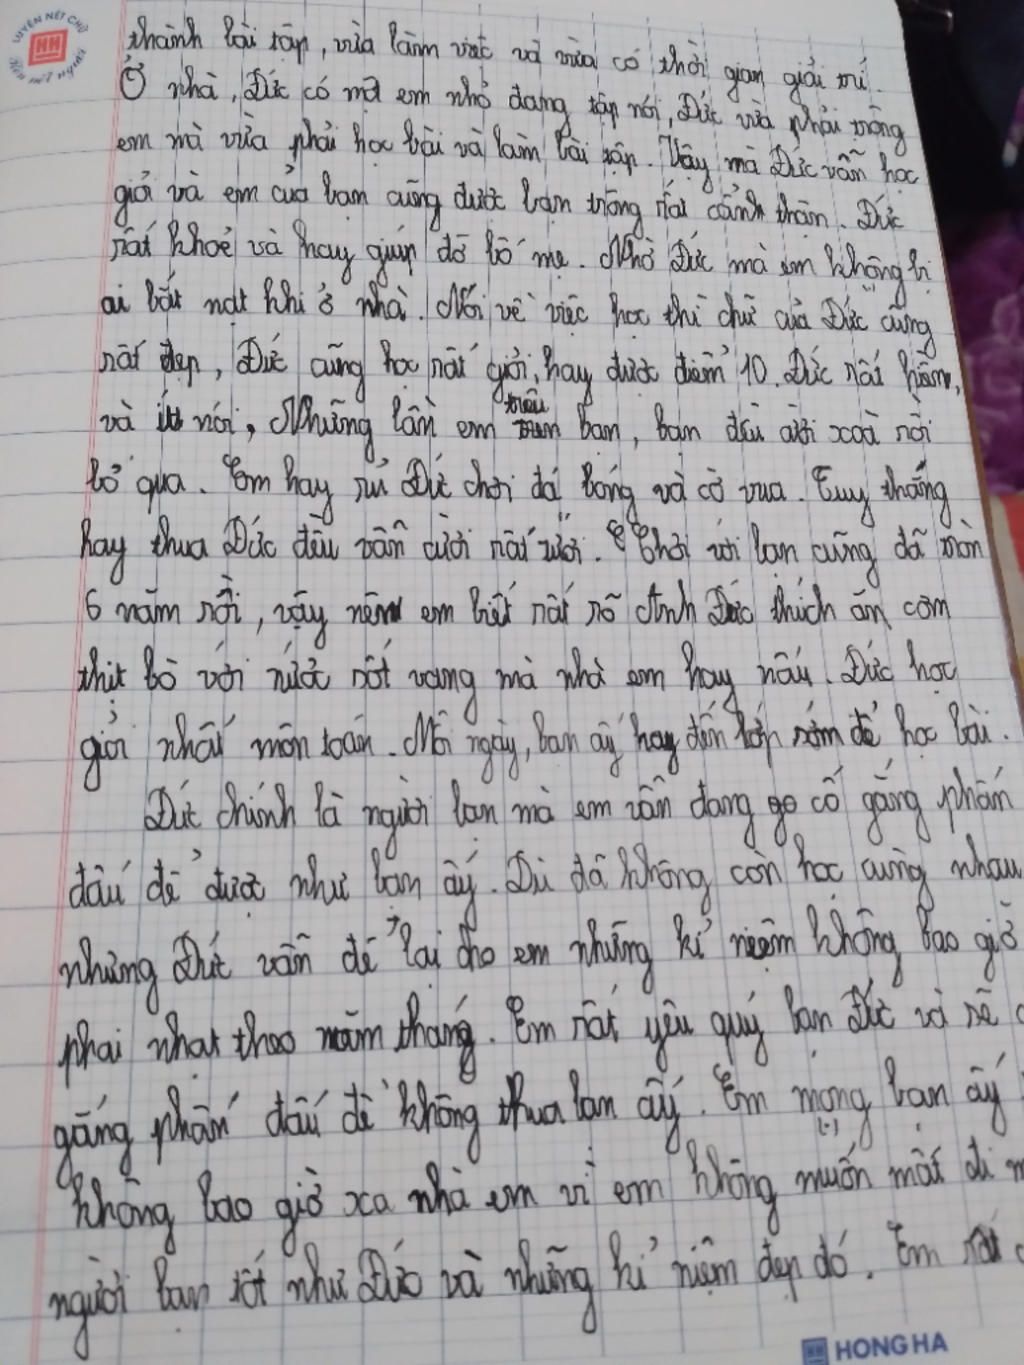 LUYỆN NÉT CHỮ
Rèn nết người
HH
thành bài tập, vừa làm việc và vừa có thời gian giải trí.
Ở nhà, Đức có một em nhỏ đang tập nói, Đức vừa phải trông
em mà vừa phải học bài và làm bài tập. Vậy mà Đức vẫn học
giỏi và em của bạn cũng được bạn trông rất cẩnh thận. Đức
rất khoẻ và hay giúp đỡ bố mẹ. Nhờ Đức mà em không bị
ai bắt nạt khi ở nhà. Nói về việc học thì chữ của Đức cũng
rất đẹp, Đức cũng học rất giỏi, hay được điểm 10. Đức rất hiền,
và ít nói, Những lần em trêu bạn, bạn đều cười xoà rồi
bỏ qua. Em hay rủ Đức chơi đá bóng và cờ vua. Tuy thắng
hay thua Đức đều vẫn cười rất tươi. Chơi với bạn cũng đã tròn
6 năm rồi, vậy nên em biết rất rõ Anh Đức thích ăn cơm
thịt bò với nước sốt vang mà nhà em hay nấu. Đức học
giỏi nhất môn toán. Mỗi ngày, bạn ấy hay đến lớp sớm để học bài.
Đức chính là người bạn mà em vẫn đang cố gắng phấn
đấu để được như bạn ấy. Dù đã không còn học cùng nhau
nhưng Đức vẫn để lại cho em những kỉ niệm không bao giờ
phai nhạt theo năm tháng. Em rất yêu quý bạn Đức và sẽ
gắng phấn đấu để không thua bạn ấy. Em mong bạn ấy
không bao giờ xa nhà em vì em không muốn mất đi
người bạn tốt như Đức và những kỉ niệm đẹp đó. Em rất
HONG HA